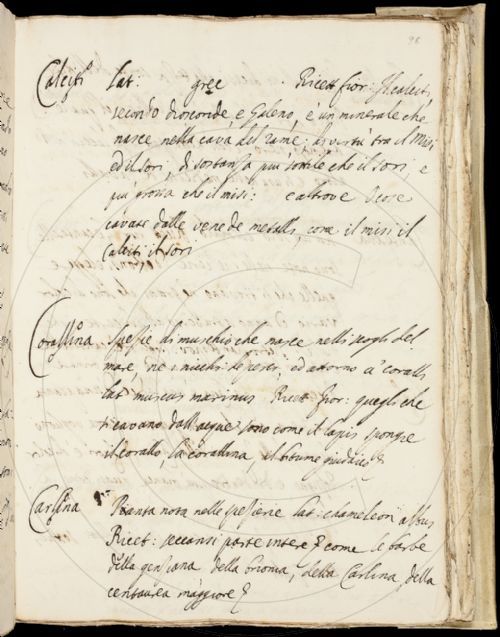 98
Calciti lat: grece Ricett fior: Il calciti,
secondo dioscoride, e Galeno, è un minerale che
nasce nella cava del rame; di virtù tra il Misi
ed il sori, di sostanza più sottile che il sori, e
più grossa che il misi: e altrove Le core
cavate dalle vene de metalli, come il misi il
calciti il sori
Corallina Spezie di muschio che nasce nelli scogli del
mare, ne i nicchi de pesci, ed attorno a' coralli
lat muscus marinus Ricett fior: quegli che
si cavano dall'acque sono come il lapis spongie
il corallo, la corallina, il bitume giudaico
Carlina Pianta nota nelle spezierie lat: chameleon albus,
Ricet: seccansi parte intere come le barbe
della genziana della brionia, della Carlina, della
centaurea maggiore